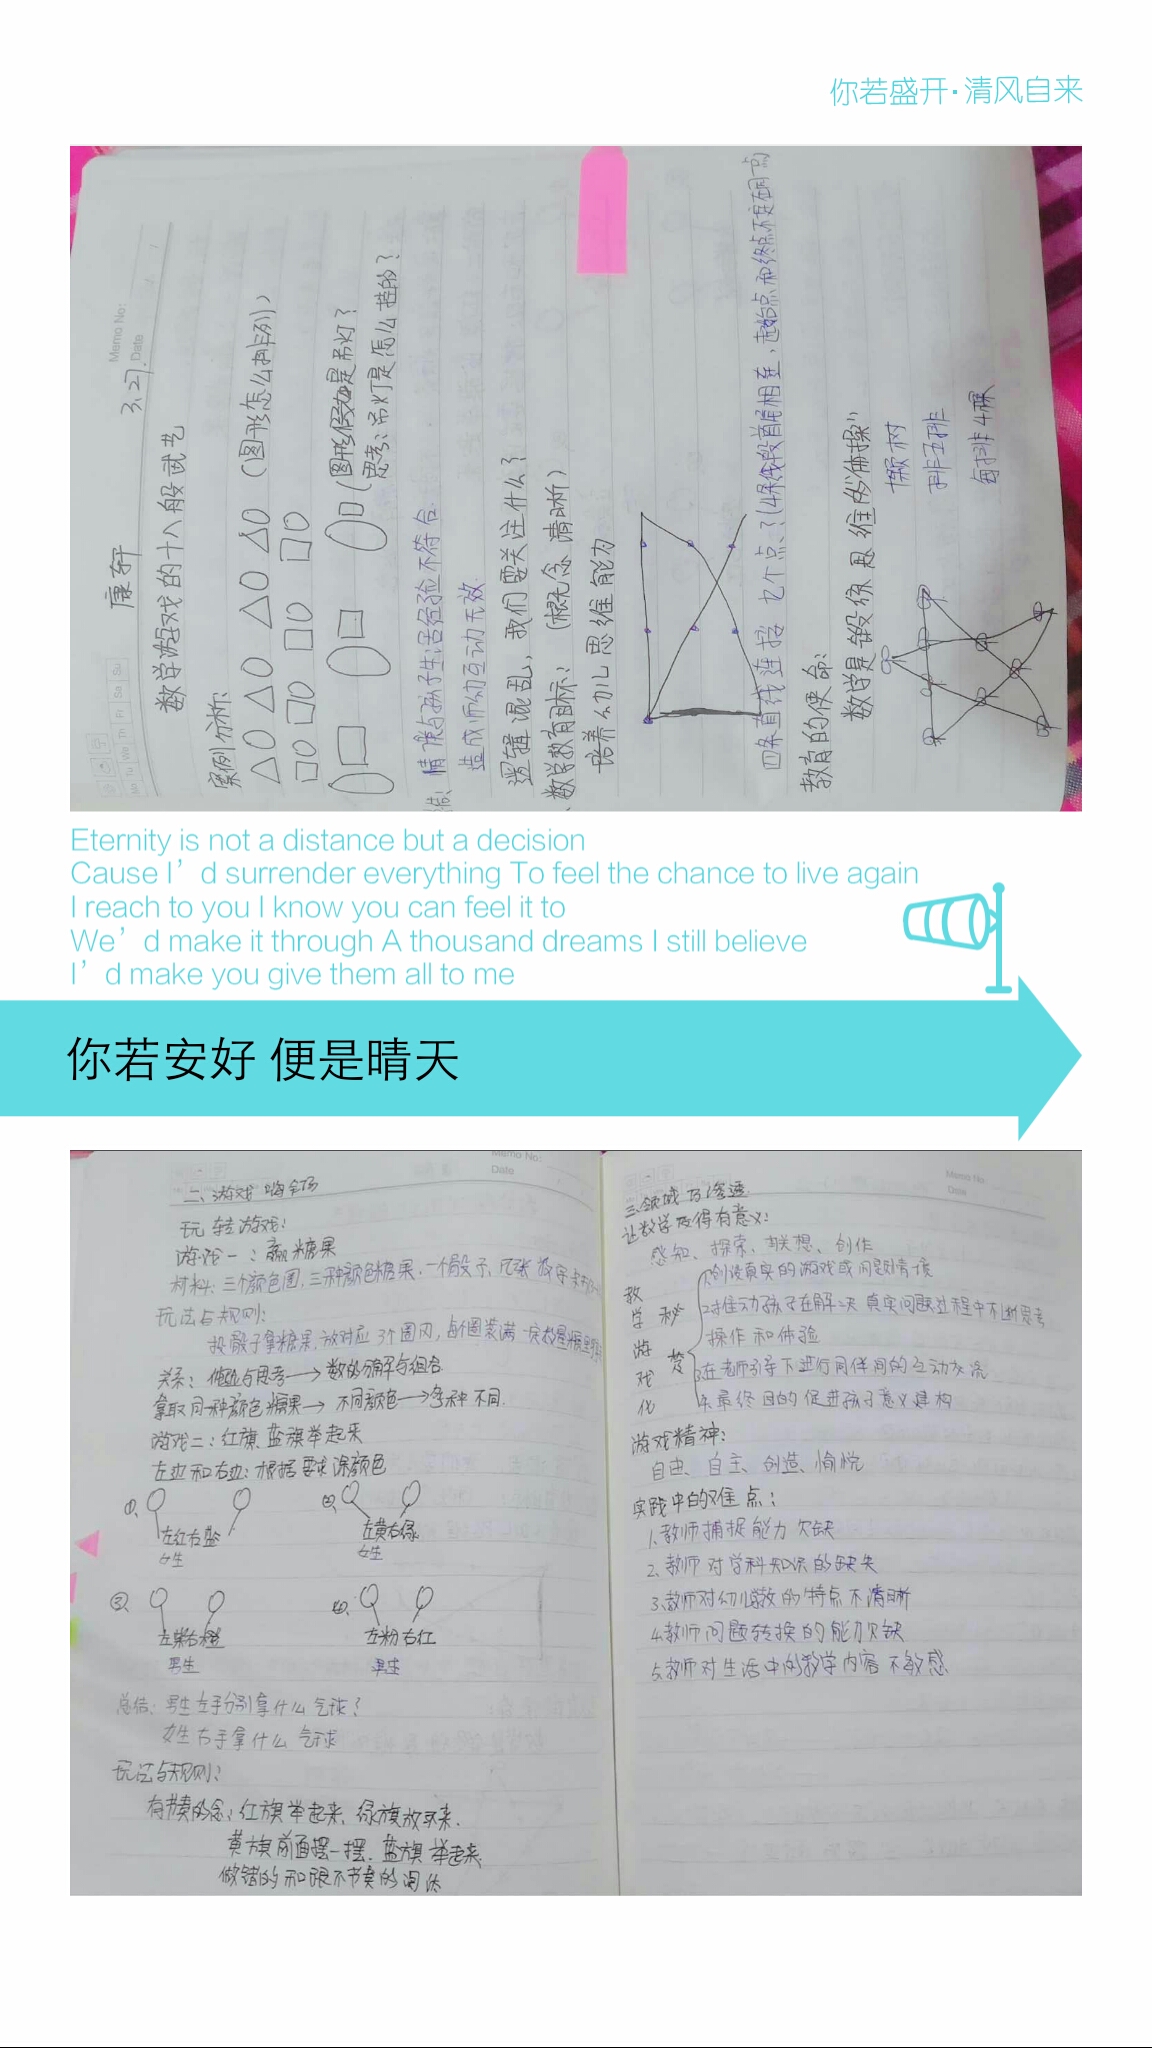 你若盛开·清风自来
Memo No:
3.27. Date
Mo Tu We Th Fr Sa Su
康轩
数学游戏的十八般武艺
案例分析:
(图形怎么排列)
(图形假如是吊灯?
思考:吊灯是怎么挂的?
情景与孩子生活经验不符合.
造成师幼互动无效.
逻辑混乱,我们要关注什么?
数学教育目标: (概念清晰)
培养幼儿思维能力
四条直线连接九个点、?(4条线段首尾相连,起始点和终点不在同一点)
教育的使命:
数学是锻练思维的“体操”
十颗树
排五排
每排4棵
Eternity is not a distance but a decision
Cause I’d surrender everything To feel the chance to live again
I reach to you I know you can feel it to
We’d make it through A thousand dreams I still believe
I’d make you give them all to me
你若安好 便是晴天
Memo No:
Date
二、游戏嗨全场
玩转游戏:
游戏一:赢糖果
材料:三个颜色圈,三种颜色糖果,一个骰子,几张数字卡
玩法与规则:
投骰子拿糖果,放对应3个圈内,每个圈装满一定数量糖果
关系:倾听与思考→数的分解与组合
拿取同一种颜色糖果→不同颜色→各种不同.
游戏二:红旗、蓝旗举起来
左边和右边:根据要求涂颜色
①、 ②、
左红右蓝 左黄右绿
女生 女生
③、 ④、
左紫右橙 左粉右红
男生 男生
总结:男生左手分别拿什么气球?
女生右手拿什么气球
玩法与规则:
有节奏的念:红旗举起来,绿旗放下来.
黄旗前面摆一摆.蓝旗举起来.
做错的和跟不节奏的淘汰
Memo No:
Date
三.领域巧渗透
让数学变得有意义:
感知、探索、联想、创作
数学游戏化
秘
1.创设真实的游戏或问题情境
2.推动孩子在解决真实问题过程中不断思考
操作和体验
3.在老师引导下进行同伴间的互动交流
4.最终目的促进孩子意义建构
游戏精神:
自由、自主、创造、愉悦
实践中的难点:
1.教师捕捉能力欠缺
2.教师对学科知识的缺失
3.教师对幼儿数的特点不清晰
4.教师问题转换的能力欠缺
5.教师对生活中的数学内容不敏感